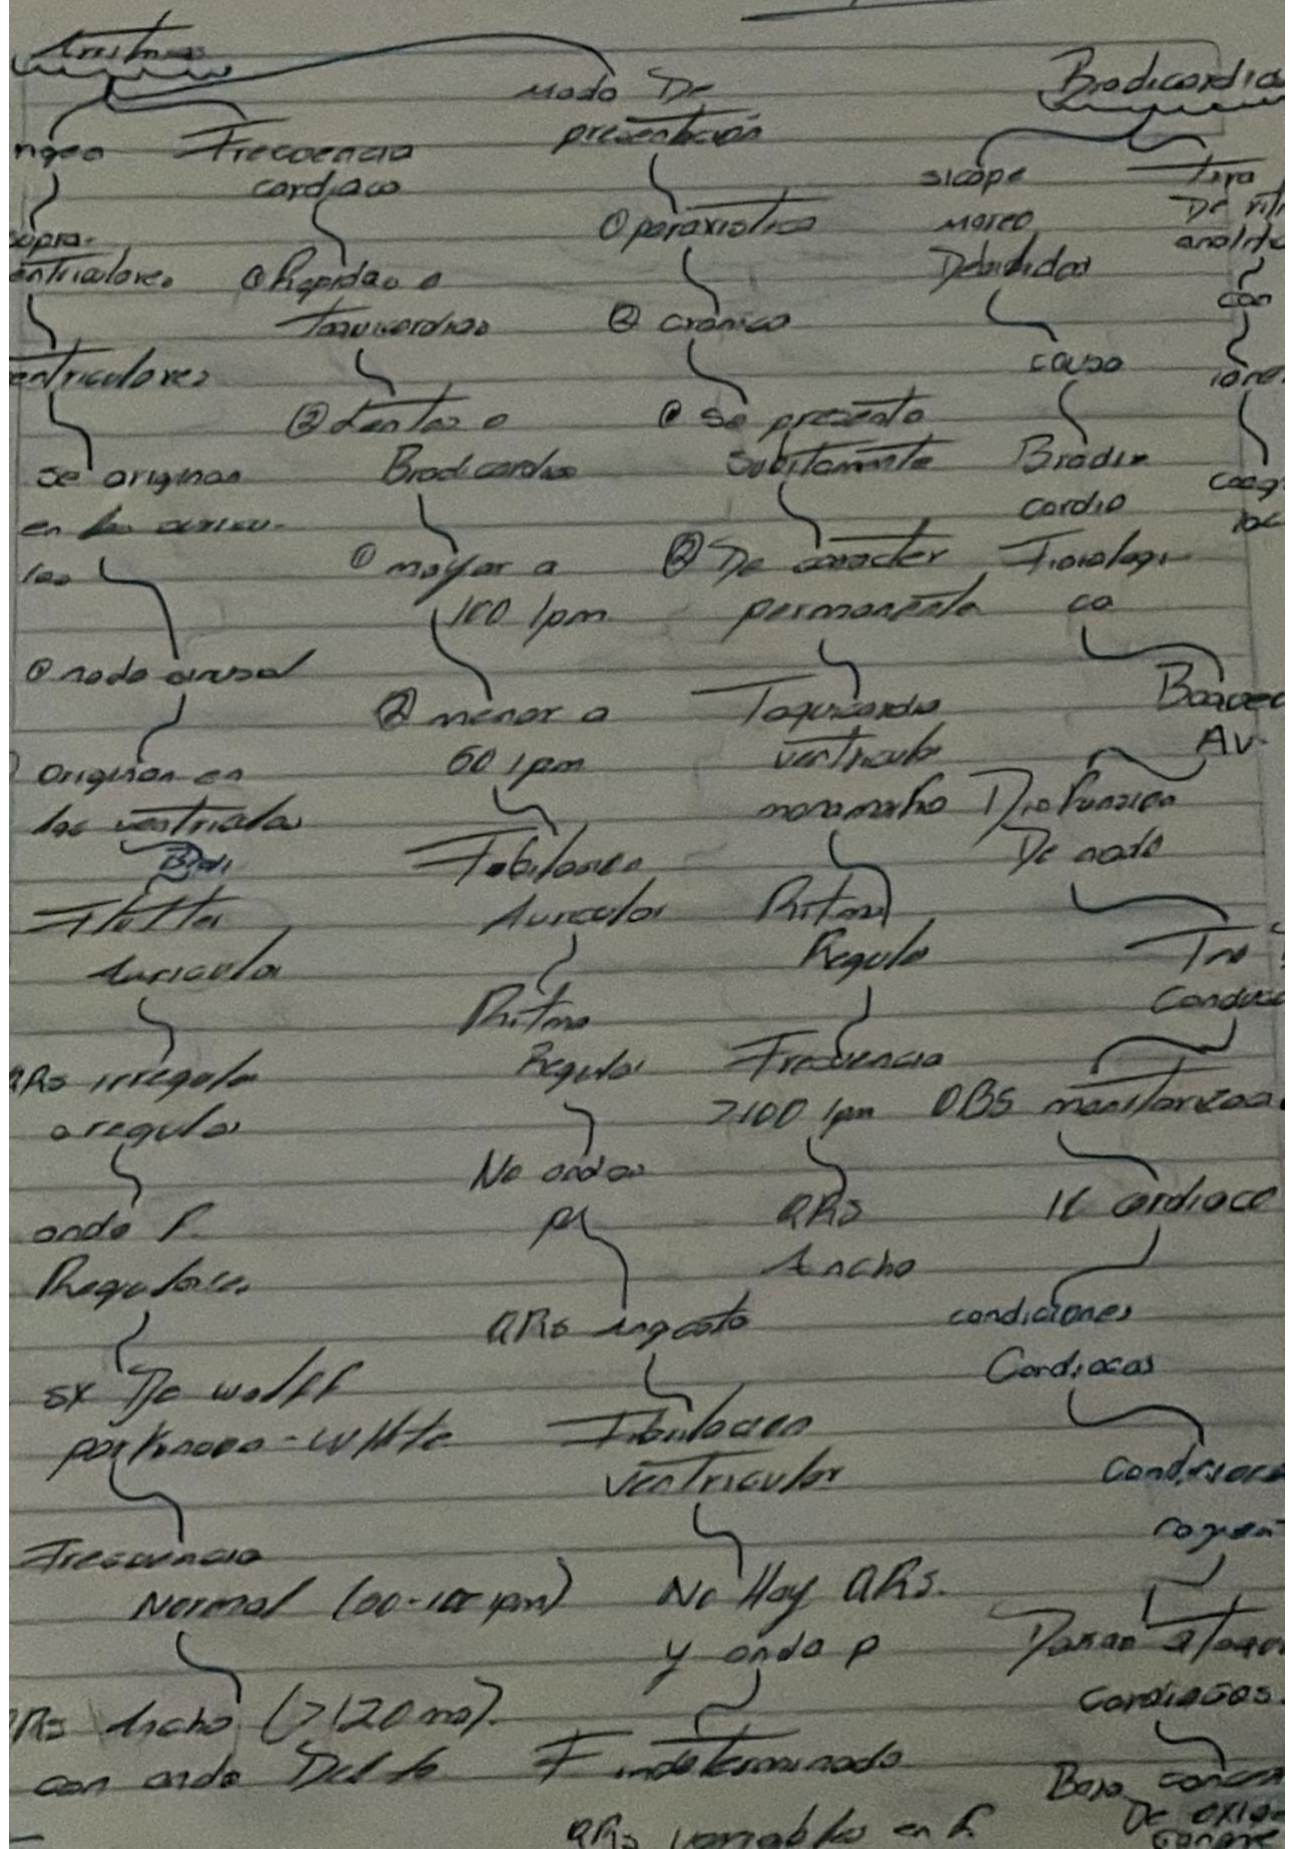 Arritmias
ngen
Supra-
entriculares
entriculares
se originan
en las auricu-
las
① nodo sinusal
Originan en
los ventriculos
Flutter
Auricular
QRS irregular
o regular
onda P.
Regulares.
sx De wolff
parkinson - white
Frecuencia
Normal (60-100 lpm)
QRS Ancho (>120 ms).
con onda Delta
Frecuencia
cardiaca
① Rapidas o
Taquicardias
② Lentas o
Bradicardias
① mayor a
100 lpm
② menor a
60 lpm
Fibilacion
Auricular
Ritmo
Regular
No ondas
p
QRS angosto
Fibrilacion
ventricular
No Hay QRS.
y onda p
F indeterminada
QRS variables en F.
Modo De
presentación
① paroxistica
② cronica
① Se presenta
Subitamente
② De caracter
permanente
Taquicardia
ventricula
monomorfo
Ritmo
Regular
Frecuencia
>100 lpm
QRS
Ancho
Bradicardia
sicope
mareo
Debilidad
causa
Bradi-
cardia
Fisiologi-
ca
Bloqueo
AV-
Disfuncion
De nodo
Conducc
OBS monitorizaa
cardiaco
condiciones
Cardiacas
Condiciones
Cardiacos.
Baja concen
De oxige
sangre
Tira
De rit
con
iones
coag